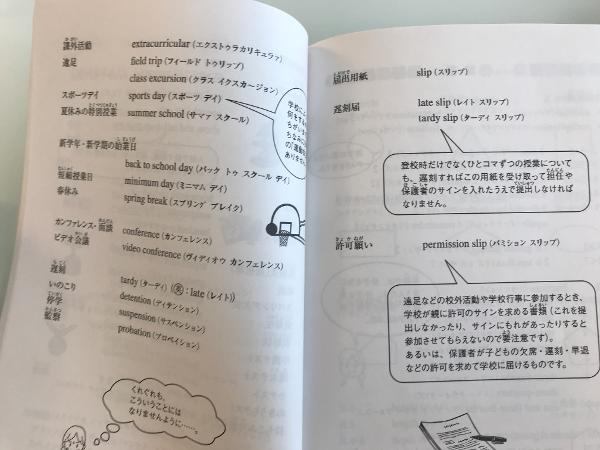 課外活動 extracurricular (エクストゥラカリキュラァ)
遠足 field trip (フィールド トゥリップ)
class excursion (クラス イクスカージョン)
スポーツデイ sports day (スポーツ デイ)
夏休みの特別授業 summer school (サマァ スクール)
新学年・新学期の始業日
back to school day (バック トゥ スクール デイ)
短縮授業日 minimum day (ミニマム デイ)
春休み spring break (スプリング ブレイク)
カンファレンス・面談 conference (カンフェレンス)
ビデオ会議 video conference (ヴィディオウ カンフェレンス)
遅刻 tardy (ターディ) (㊟: late (レイト))
いのこり detention (ディテンション)
停学 suspension (サスペンション)
監察 probation (プロベイション)
くれぐれも、
こういうことには
なりませんように……。
届出用紙 slip (スリップ)
遅刻届 late slip (レイト スリップ)
tardy slip (ターディ スリップ)
登校時だけでなくひとコマずつの授業について
も、遅刻すればこの用紙を受け取って担任や
保護者のサインを入れたうえで提出しなければ
なりません。
許可願い permission slip (パミション スリップ)
遠足などの校外活動や学校行事に参加するとき、
学校が親に許可のサインを求める書類（これを提
出しなかったり、サインにもれがあったりすると
参加させてもらえないので要注意です）。
あるいは、保護者が子どもの欠席・遅刻・早退
などの許可を求めて学校に届けるものです。